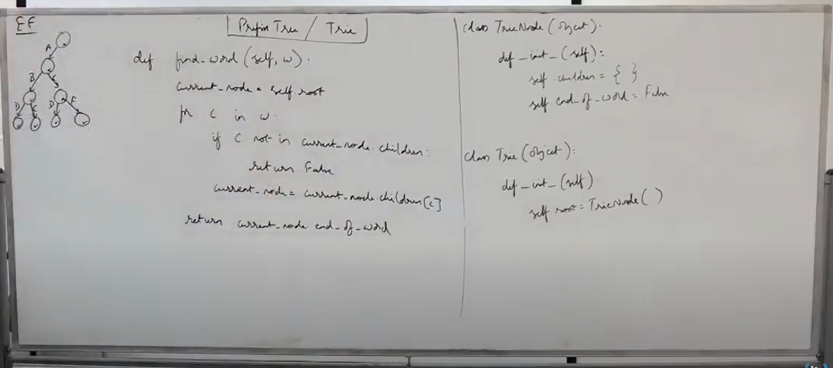 EF
Prefix Tree / Trie
A
B C
D E D F
def find_word (self, w):
current_node = self.root
for c in w:
if c not in current_node.children:
return False
current_node = current_node.children[c]
return current_node.end_of_word
class TrieNode (object):
def _init_ (self):
self.children = { }
self.end_of_word = False
class Trie (object):
def _init_ (self)
self.root = TrieNode ( )